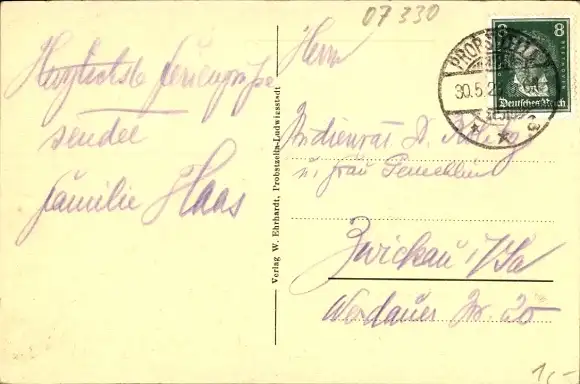 07330
Herzlichste Feriengrüße
sendet
Familie Haas
Verlag W. Ehrhardt, Probstzella-Ludwigsstadt
Herrn
Studienrat D.
u. Frau Gemahlin
Zwickau i/Sa
Werdauer Str. 20
PROBSTZELLA
30.5.2
8 8
Deutsches Reich
1,-